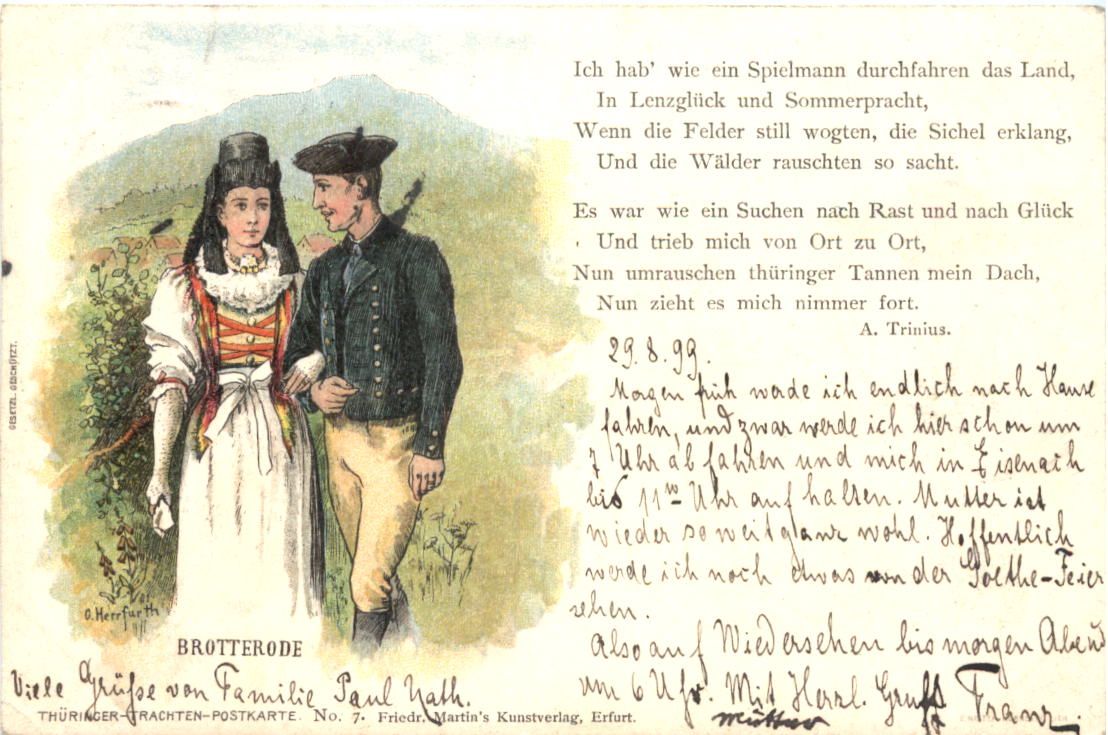 Ich hab' wie ein Spielmann durchfahren das Land,
In Lenzglück und Sommerpracht,
Wenn die Felder still wogten, die Sichel erklang,
Und die Wälder rauschten so sacht.
Es war wie ein Suchen nach Rast und nach Glück
Und trieb mich von Ort zu Ort,
Nun umrauschen thüringer Tannen mein Dach,
Nun zieht es mich nimmer fort.
A. Trinius.
29.8.99.
Morgen früh werde ich endlich nach Hause
fahren, und zwar werde ich hier schon um
7 Uhr abfahren und mich in Eisenach
bis 11 Uhr aufhalten. Mutter ist
wieder soweit ganz wohl. Hoffentlich
werde ich noch etwas von der Goethe-Feier
sehen.
Also auf Wiedersehen bis morgen Abend
um 6 Uhr. Mit Herzl. Gruß Franz.
Mutter
GESETZL. GESCHÜTZT.
O. Herrfurth
BROTTERODE
Viele Grüße von Familie Paul Nath.
THÜRINGER-TRACHTEN-POSTKARTE. No. 7. Friedr. Martin's Kunstverlag, Erfurt.